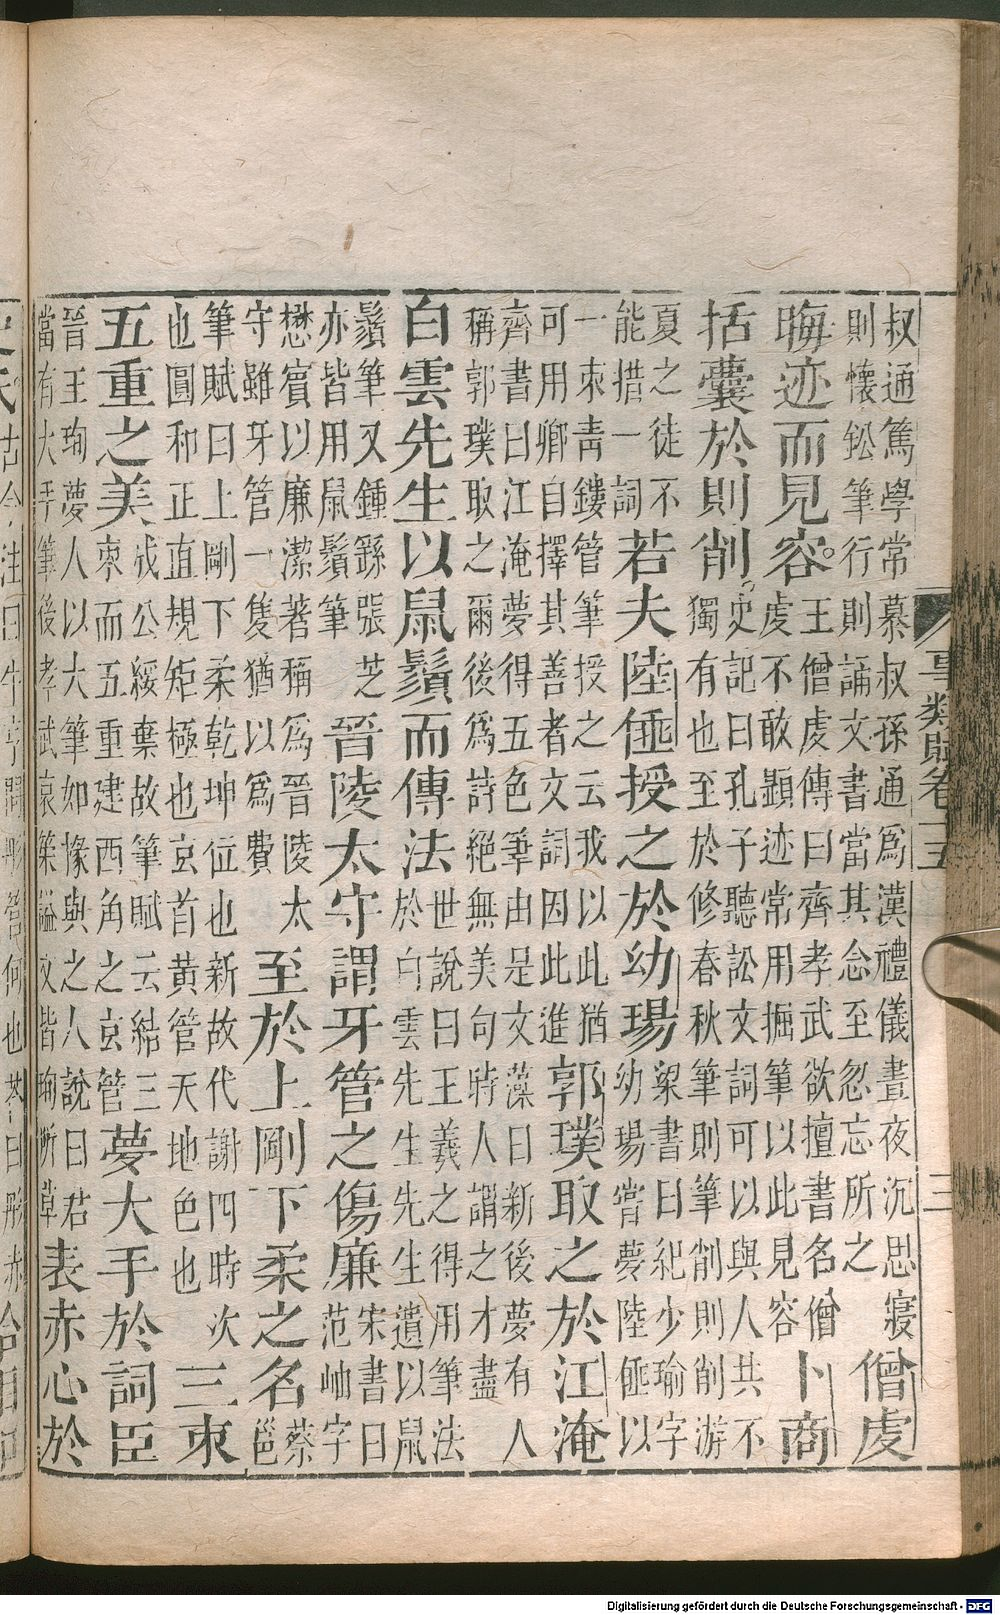 事類賦卷十五 三
叔通篤學常慕叔孫通爲漢禮儀晝夜沉思寢
則懷鈆筆行則誦文書當其念至忽忘所之
僧虔
晦迹而見容
王僧虔傳曰齊孝武欲擅書名僧
虔不敢顯迹常用掘筆以此見容
卜商
括囊於則削
史記曰孔子聽訟文詞可以與人共不
獨有也至於修春秋筆則筆削則削游
夏之徒不
能措一詞
若夫陸倕授之於幼瑒
梁書曰紀少瑜字
幼瑒嘗夢陸倕以
一束青鏤管筆授之云我以此猶
可用卿自擇其善者文詞因此進
郭璞取之於江淹
齊書曰江淹夢得五色筆由是文藻日新後夢有人
稱郭璞取之爾後爲詩絕無美句時人謂之才盡
白雲先生以鼠鬚而傳法
世說曰王羲之得用筆法
於白雲先生先生遺以鼠
鬚筆又鍾繇張芝
亦皆用鼠鬚筆
晉陵太守謂牙管之傷廉
宋書曰
范岫字
懋賓以廉潔著稱爲晉陵太
守雖牙管一隻猶以爲費
至於上剛下柔之名
蔡
邕
筆賦曰上剛下柔乾坤位也新故代謝四時次
也圓和正直規矩極也玄首黃管天地色也
三束
五重之美
成公綏棄故筆賦云結三
束而五重建西角之玄管
夢大手於詞臣
晉王珣夢人以大筆如椽與之人說曰君
當有大手筆後孝武哀策諡文皆珣所草
表赤心於
Digitalisierung gefördert durch die Deutsche Forschungsgemeinschaft - DFG